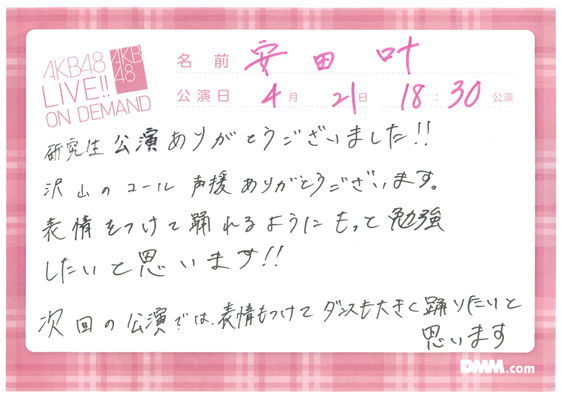 AKB48
LIVE!!
ON DEMAND
AKB
48
名前 安田叶
公演日 4月 21日 18:30 公演
研究生公演ありがとうございました!!
沢山のコール声援ありがとうございます。
表情をつけて踊れるようにもっと勉強
したいと思います!!
次回の公演では、表情もつけてダンスも大きく踊りたいと
思います
DMM.com